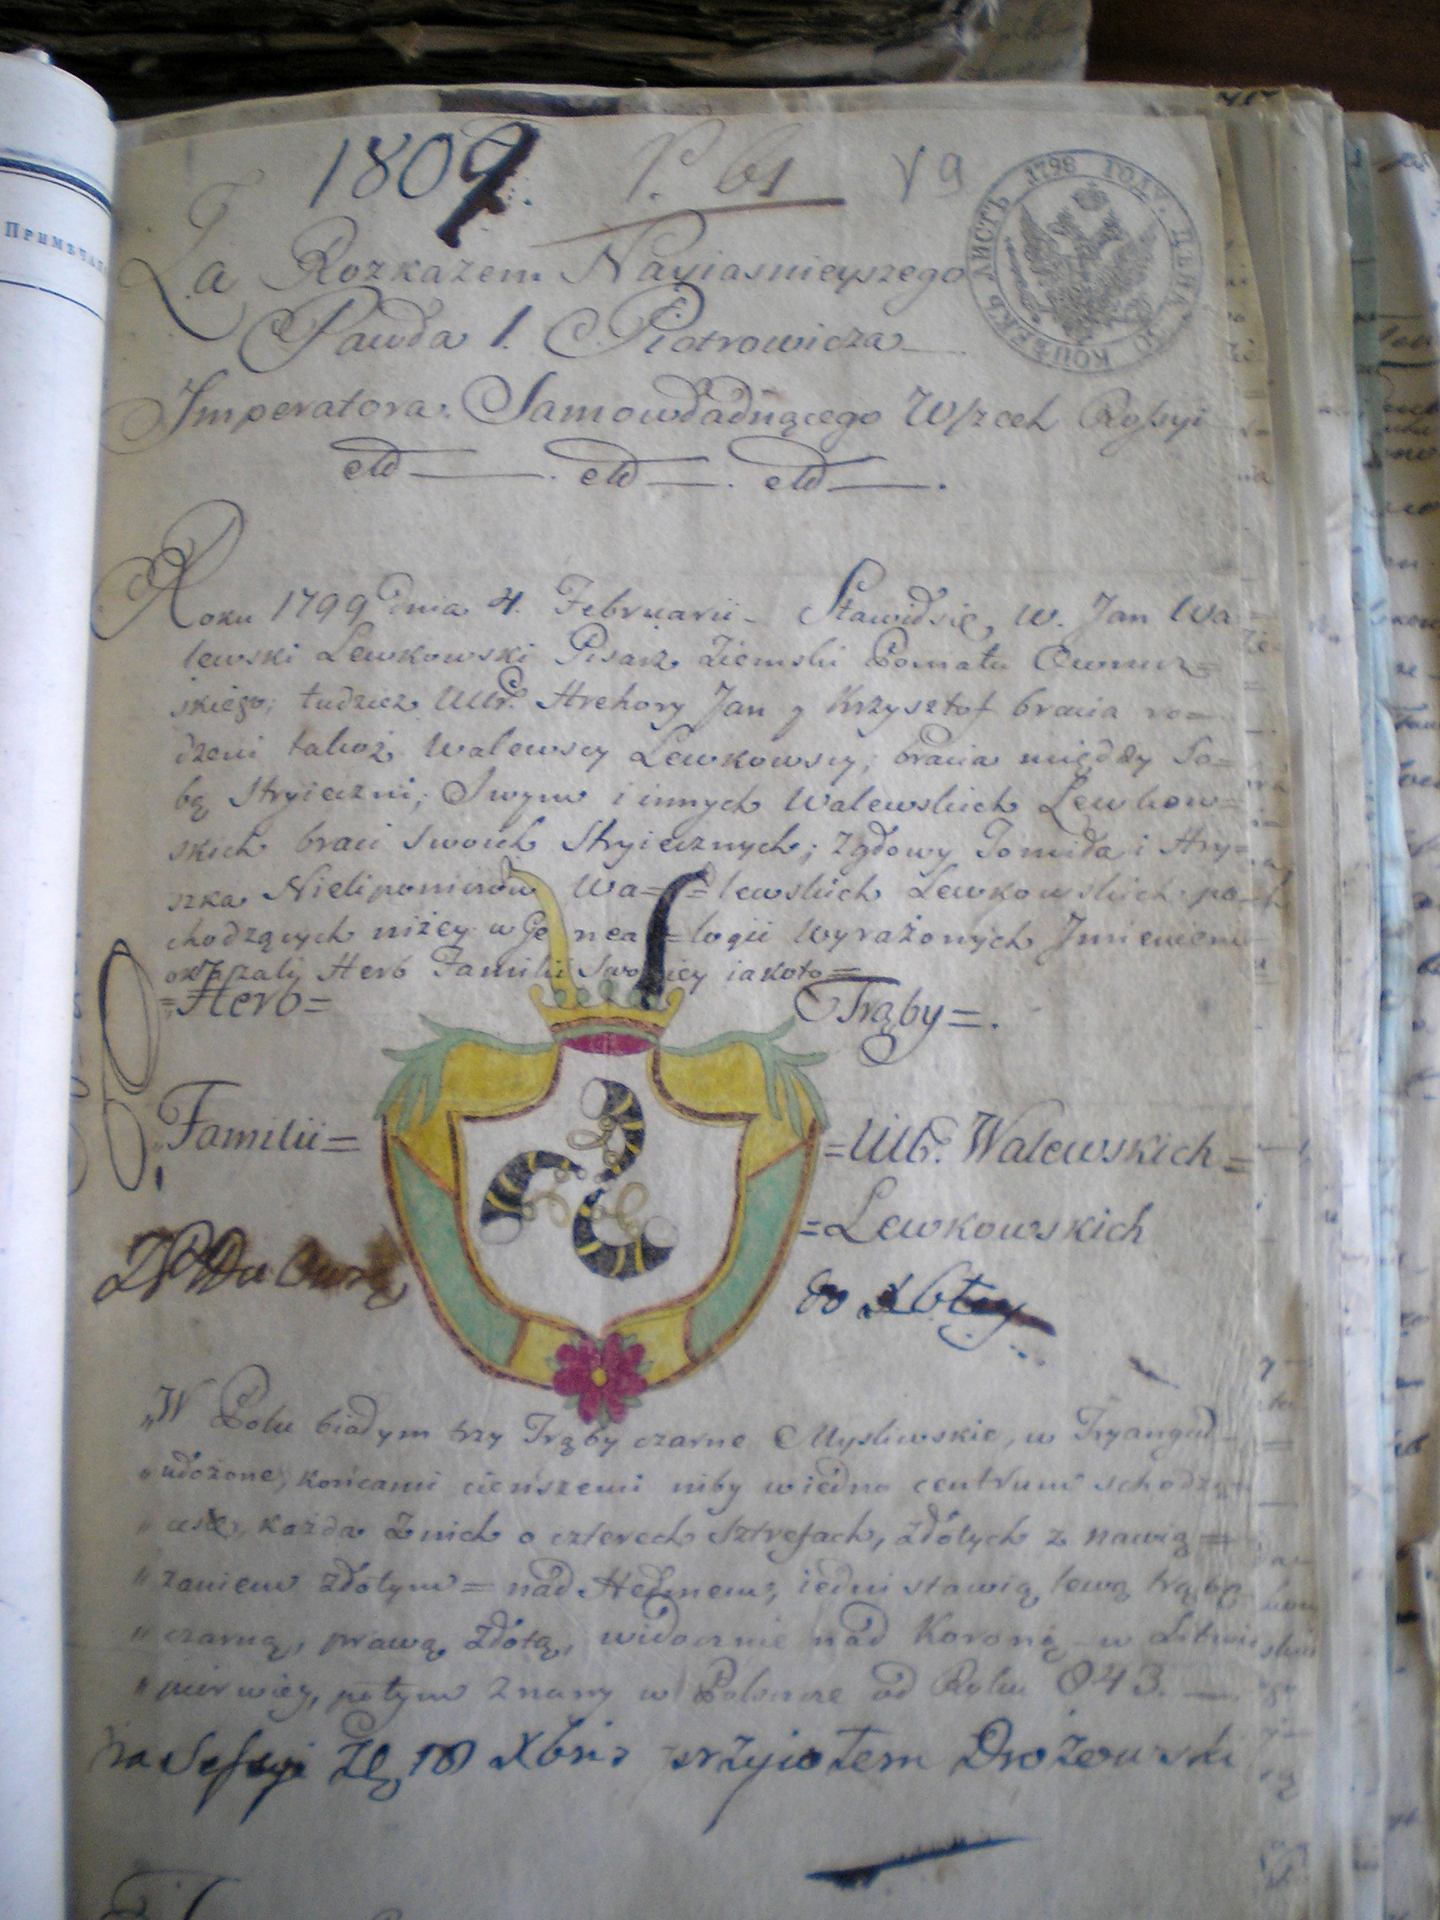 1809.
Примѣча
ЛИСТЪ 1798 ГОДУ. ЦѢНА 30 КОПѢЕКЪ
Za Rozkazem Nayiasnieyszego
Pawła 1. Piotrowicza
Imperatora Samowładnącego Wszech Rossyi
etd etd etd
Roku 1799 dnia 4. Februarii Stawił się W. Jan Wa=
lewski Lewkowski Pisarz Ziemski Powiatu Owruc=
skiego; tudzież Ur. Hrehory Jan y Krzysztof bracia ro=
dzeni takoż Walewscy Lewkowscy; bracia między So=
bą Stryieczni; Swym i innych Walewskich Lewkow=
skich braci swoich Stryiecznych; z głowy Tomiła i Hry=
szka Walewskich Lewkowskich po=
chodzących niżey w Genea=logii wyrażonych Jmieniem
okazali Herb Familii Swoiey iakoto=
=Herb= Trąby=.
Familii= =Ur. Walewskich=
=Lewkowskich
do
„W Polu białym trzy Trąby czarne Mysliwskie, w Tryangul
„ułożone, końcami cieńszemi niby w iedno centrum schodzą
„ce się, każda z nich o czterech Sztrefach, złotych z nawią=
„zaniem złotym= nad Hełmem, iedni stawią lewą trąbę
„czarną, prawą złotą, widocznie nad Koroną w Litwie
„pierwiey, potym znany w Polszcze od Roku 843.
na Sessyi 18 Xbris przyiołem Drożewski